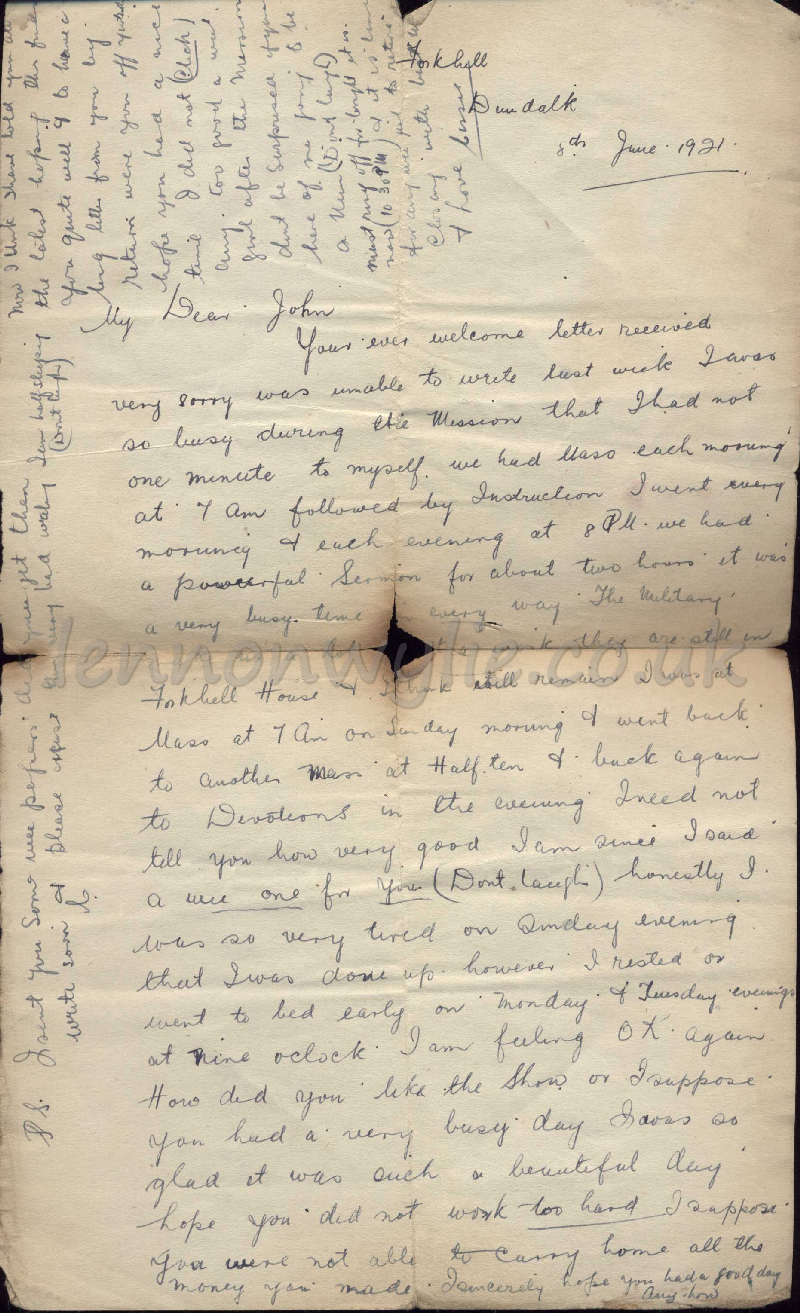 Forkhill
Dundalk
8th June 1921.
My Dear John
Your ever welcome letter received
very sorry was unable to write last week I was
so busy during the Mission that I had not
one minute to myself. we had Mass each morning
at 7 Am followed by Instruction I went every
morning & each evening at 8 PM. we had
a powerful Sermon for about two hours it was
a very busy time in every way The Military
they are still in
Forkhill House & I think still remain I was at
Mass at 7 Am on Sunday morning & went back
to another Mass at Half.ten & back again
to Devotions in the evening I need not
tell you how very good I am since I said
a wee one for you (Dont laugh) honestly I
was so very tired on Sunday evening
that I was done up. however I rested or
went to bed early on Monday & Tuesday evenings
at nine oclock I am feeling O K again
How did you like the Show or I suppose
you had a very busy day I was so
glad it was such a beautiful day
hope you did not work too hard I suppose
you were not able to carry home all the
money you made. I sincerely hope you had a good day
Any how
Now I think I have told you all
the latest hoping this finds
you quite well & to have a
long letter from you by
return were you off
hope you had a nice
time I did not (Click)
any too good a
girl after the Mission
dont be surprised if you
hear of me going to be
a Nun (Dont laugh)
must ring off for tonight it is
now (10 30 PM) & it is time
for any wee girl to retire
Closing with best
& love
P.S. I sent you some wee papers did you get them I am half sleeping
(Dont laugh)
write soon & please excuse this very bad writing
lennonwylie.co.uk